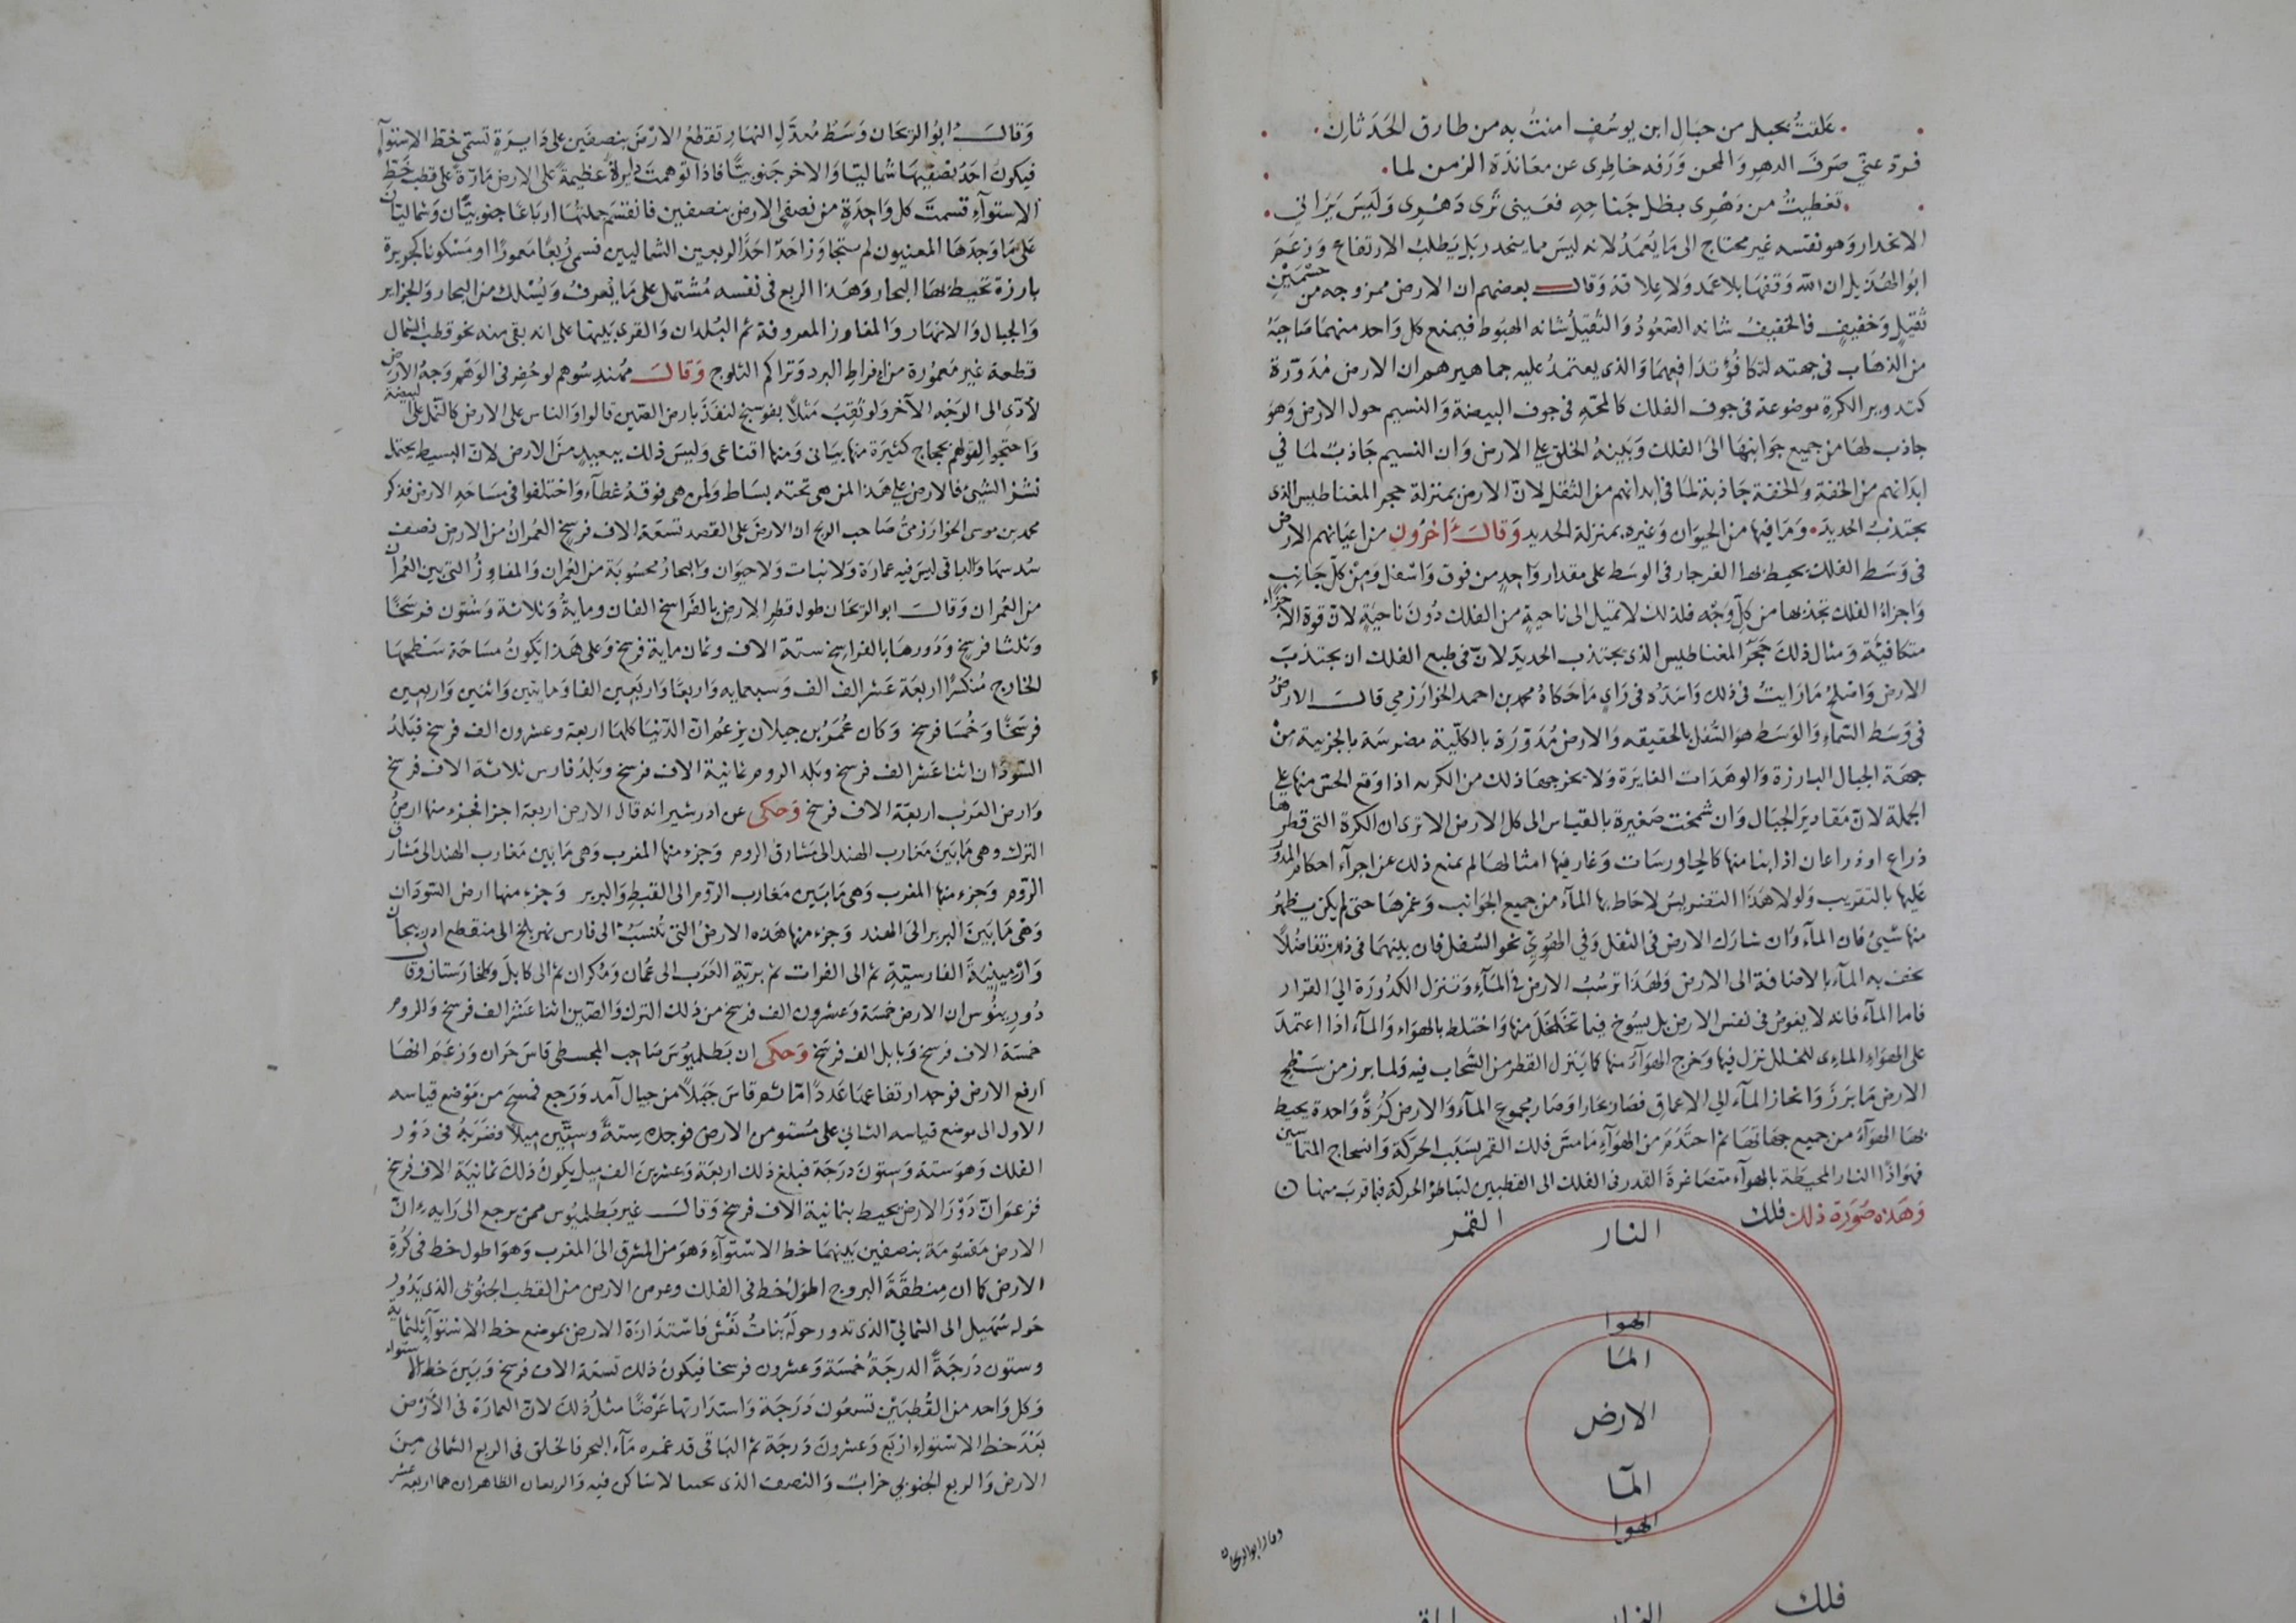 علقتُ بحبل من حبال ابن يوسُفٍ امنتُ به من طارق الحَدَثانِ
فردّ عنّي صَرفَ الدهر وَالمحن وَرَفه خاطِرى عن معَاندَة الزمن لما
تغطيتُ من دَهرِى بظل جَناحِهِ فعَينى تَرى دَهرِى وَليسَ يَرَاني
الانحدار وَهو نفسه غير محتاج الى مَا يُعمَدُ لانه ليسَ مما ينحدر بَل يَطلبُ الارتفاع وَزعَمَ
ابوُ الهُذَيل ان الله وَقفهَا بلا عَمَد وَلا عِلاقة وَقالــ بعضهم ان الارض ممزوجه من جسْمَيْنِ
ثقيلٍ وَخفيفٍ فالخفيفُ شانه الصّعُودُ وَالثقيلُ شانه الهبَوط فيمنع كل وَاحد منهمَا صَاحِبَهُ
من الذهَاب فى جهته لتكافُؤ تدَافعِهمَا وَالذى يعتمدُ عليه جماهيرهم ان الارض مُدَوّرَة
كتدوير الكرة موضوعة فى جوف الفلك كالمحّهِ فى جوف البيضة وَالنسيم حول الارض وَهوَ
جاذب لهَا من جميع جَوَانبهَا الىَ الفلك وَبَينهُ الخلق على الارض وَان النسيم جَاذبٌ لمَا في
ابدَانهم من الخفة وَالخفة جَاذبة لمَا فى ابدانهم من الثقل لانّ الارض بمنزلة حجر المغناطيس الذى
يجتذبُ الحديدَ وَمَا فيها من الحيوَان وَغيره بمنزلة الحديد وَقالــ اَخرُون من اعيَانهم الارض
فى وَسَط الفلك يحيط بها الفرجار فى الوسَط على مقدار وَاحِدٍ من فوق وَاسْفل وَمِنْ كلّ جَانبٍ
وَاجزاءُ الفلك تجذبها من كلّ وَجْه فلذلك لا تميل الى ناحيةٍ من الفلك دُونَ ناحيَةٍ لانّ قوة الاجزاء
متكافيَّة وَمثال ذلكَ حَجَرُ المغناطيس الذى يجتذب الحديدَ لانّ فى طبع الفلك ان يجتذبَ
الارض وَاصْلحُ مَا رَايتُ فى ذلك وَاسَدّه فى رَايٍ مَا حَكاهُ محمد بن احمد الخوارَزمي قالــ الارضُ
فى وَسَط السّماء وَالوَسَط هوَ السُّفل بالحقيقه وَالارض مُدَوّرَة بالكلّيّة مضرسَة بالجزئية مِنْ
جهَة الجبال البارزة وَالوهَدَات الغايرَة وَلا يخرجهَا ذلك من الكريه اذا وَقع الحسّ منها على
الجملة لانّ مَقاديرَ الجبَال وَان شمخت صَغيرة بالقيَاس الى كل الارض الا ترى ان الكرة التى قطرها
ذراع او ذراعان اذا نتا منها كالجاورسَات وَغار فيها امثالهَا لم يمنع ذلك عن اجرآء احكام المدوّر
عَليها بالتقريب وَلولا هَذَا التضريسُ لاحَاط بها المآء من جميع الجوَانب وَغمرهَا حتى لم يكن يظهرُ
منها شيئ فان المآء وَان شارَك الارض فى الثقل وَفي الهُويّ نحو السُفل فان بينهمَا فى ذلك تفاضُلاً
يخف به المآء بالاضافة الى الارض وَلهَذَا ترسُبُ الارض فى المآءِ وَتنزل الكدُورَة اليَ القرار
فاما المآء فانه لا يغوصُ فى نفس الارض بل يسُوخ فيما تخَلخَل منها وَاختلط بالهوَاء وَالمآء اذا اعتمدَ
على الهوَاء الماءى للتخلل نزل فيها وَخرج الهوَآءُ منها كما يَنزل القطر من السّحَاب فيه وَلما برز من سَطحِ
الارض مَا برَزَ وَانحاز المآء الي الاعماق فصَار بحَارا وَصَار مجموع المآء وَالارض كُرَةً وَاحدة يحيط
بها الهوَآءُ من جميع جهَاتهَا ثم احتَدَمَ من الهوَآءِ مَا مسّ فلك القمر بسَبَب الحرَكة وَانسحاج المتماسين
فهوَ اذًا النار المحيَطة بالهوآء متصَاغرة القدر فى الفلك الى القطبين لتبَاطؤ الحركة فيما قرب منها
وَهَذه صُورَة ذلك فلك القمر
النار
الهوا
المآ
الارض
المآ
الهوا
فلك
وقال ابو الريحان
وَقالَــ ابوُ الريَحَان وَسَط مُعدَّلِ النهَارِ تقطعُ الارْضَ بنصفَين على دَايرَةٍ تسَمى خطّ الاستوآء
فيكونُ احَدُ نصْفيهَا شماليّا وَالاخر جَنوبيًّا فاذا توهمتَ دايرةً عَظيمةً على الارض مَارّةً على قطب خَطِّ
الاستوآء قسمتَ كل وَاحِدَةٍ من نصفى الارض بنصفين فانقسَم جملتهَا ارباعًا جنوبيّان وَشماليّان
عَلى مَا وَجدَهَا المعنيون لم يتجَاوَزا حَدّ احَد الربعين الشماليين فسمى رُبعًا مَعمورًا او مَسْكونا كجزيرة
بارزة تحيط بهَا البحار وَهَذا الربع فى نفسه مُشتمل على مَا يُعرفُ وَيُسْلك من البحار وَالجزاير
وَالجبال وَالانهَار وَالمفاوز المعروفة ثم البُلدان وَالقرى بَينها على انه بقى منه نحو قطب الشمال
قطعة غير مَعمُورة من افراطِ البرد وَتراكم الثلوج وَقالــ مُهَندِسُوهم لو حُفِر فى الوَهْم وَجهُ الارض
لأدّى الى الوَجْه الآخر وَلو نُقِبَ مَثلاً بفوسنج لنفَذَ بارض الصّين قالوا وَالناس على الارض كالنّمل على البيضة
وَاحتجوا لقولهم بحجاج كثيَرة منها بيَانى وَمنها اقناعى وَليسَ ذلك ببَعيدٍ منَ الارض لانّ البسيط يحتمل
نشز الشيئ فالارض على هَذا لمن هى تحته بسَاط وَلمن هى فوقه غطآء وَاختلفوا فى مسَاحَهِ الارض فذكر
محمد بن موسى الخوارَزميُّ صَاحب الزيج ان الارضَ على القصد تسعَة الاف فرسِخ العُمرانُ من الارض نصف
سُدسهَا وَالباقى ليسَ فيه عمارَة وَلا نبات وَلا حيَوان وَالبحارُ محسُوبَة من العُمران وَالمفاوزُ التى بين العُمران
من العُمران وَقالــ ابو الريحَان طول قطر الارض بالفَرَاسخ الفان ومايةٌ وَثلاثة وَستّون فرسَخًا
وَثلثا فرسخ وَدَورهَا بالفراسخ ستة الاف وثمان ماية فرسخ وَعلى هَذا يَكونُ مسَاحَة سَطحهَا
الخارج مُنكسّرًا اربعَة عَشر الف الف وَسبعمايه وَاربعًا وَاربَعين الفا وَمايتين وَاثنين وَاربعين
فرسَخًا وَخُمسَا فرسخ وَكان عُمَرُ بن جيلان يزعمُ انّ الدّنيَا كلهَا اربعة وعشرون الف فرسخ فبَلدُ
السّودَان اثنا عَشر الف فرسخ وبلد الروم ثمانية الاف فرسخ وَبلَدُ فارس ثلاثة الاف فرسخ
وَارض العَرَب اربعَة الاف فرسخ وَحكى عن ادرشير انه قال الارض اربعة اجزا فجزء منها ارضُ
الترك وهى مَا بَينَ مَغارب الهند الى مَشارق الروم وَجزء منها المغرب وَهى مَا بين مَغارب الهند الى مَشارق
الرّوم وَجزء منها المغرب وَهى مَا بَين مَغارب الرّوم الى القبط وَالبربر وَجزء منها ارض السّودَان
وَهىَ مَا بَينَ البربر الىَ الهند وَجزء منها هَذه الارضُ التى تُنسَبُ الى فارس نهر بلخ الى منقطع اذربيجان
وَارْمينيَة الفارسيّة ثم الى الفرات ثم بريّة العَرَب الى عُمان وَمُكران ثم الى كابلَ وَطخارَستان وقال
دُورِينُوس ان الارض خمسَة وَعشرون الف فرسخ من ذلك الترك وَالصّين اثنا عَشرَ الف فرسخ وَالروم
خمسَة الاف فرسخ وَبابل الف فرسَخ وَحكى ان بَطلميُوسَ صَاحب المجسطى قاسَ حَران وَزعَمَ انهَا
ارفع الارض فوجد ارتفاعهَا عَددًا ما ثم قاسَ جَبَلاً من جبال آمد وَرَجع فمسَحَ من مَوْضع قياسه
الاول الى موضع قياسه الثاني على مُستوٍ من الارض فوجده ستةً وَستّين ميلاً فضرَبهُ فى دَوْر
الفلك وَهوَ ستة وَستونَ دَرَجَة فبلغ ذلك اربعَة وَعشرينَ الف ميل يكونُ ذلكَ ثمانيَة الاف فرسَخ
فزعمَ انّ دَوْرَ الارض يحيط بثمانية الاف فرسخ وَقالَــ غير بَطلميُوس ممن يرجع الى رَايه انّ
الارض مَقسُومَة بنصفين بَينهمَا خط الاستوآء وَهوَ من المشرق الىَ المغرب وَهوَ اطول خط فى كُرَة
الارض كما ان مِنطقَةَ البروج اطوَل خط فى الفلك وعرض الارض من القطب الجنُوبى الذى يَدُور
حَوله سُهَيل الى الشّمالىّ الذى تدور حولهُ بَناتُ نَعْش فاستدارَة الارض بموضع خط الاستوآء ثلثماية
وستون دَرَجَة الدرجَة خمسَة وَعشرون فرسخا فيكونُ ذلك تسعَة الاف فرسخ وَبَينَ خط الاستواء
وَكل وَاحد من القُطبَيْن تسعُون دَرَجَة وَاستدَارتها عَرضًا مثل ذلكَ لانّ العمارَة فى الارض
بَعْدَ خط الاسْتواء ارْبَع وَعشرونَ دَرجَة ثم البَاقى قد غمره مَآء البحر فالخلق فى الربع الشمالى مِنَ
الارض وَالربع الجنوبي خرابٌ وَالنصف الذى تحتنا لا سَاكن فيه وَالربعان الظاهران هما اربعة عشر